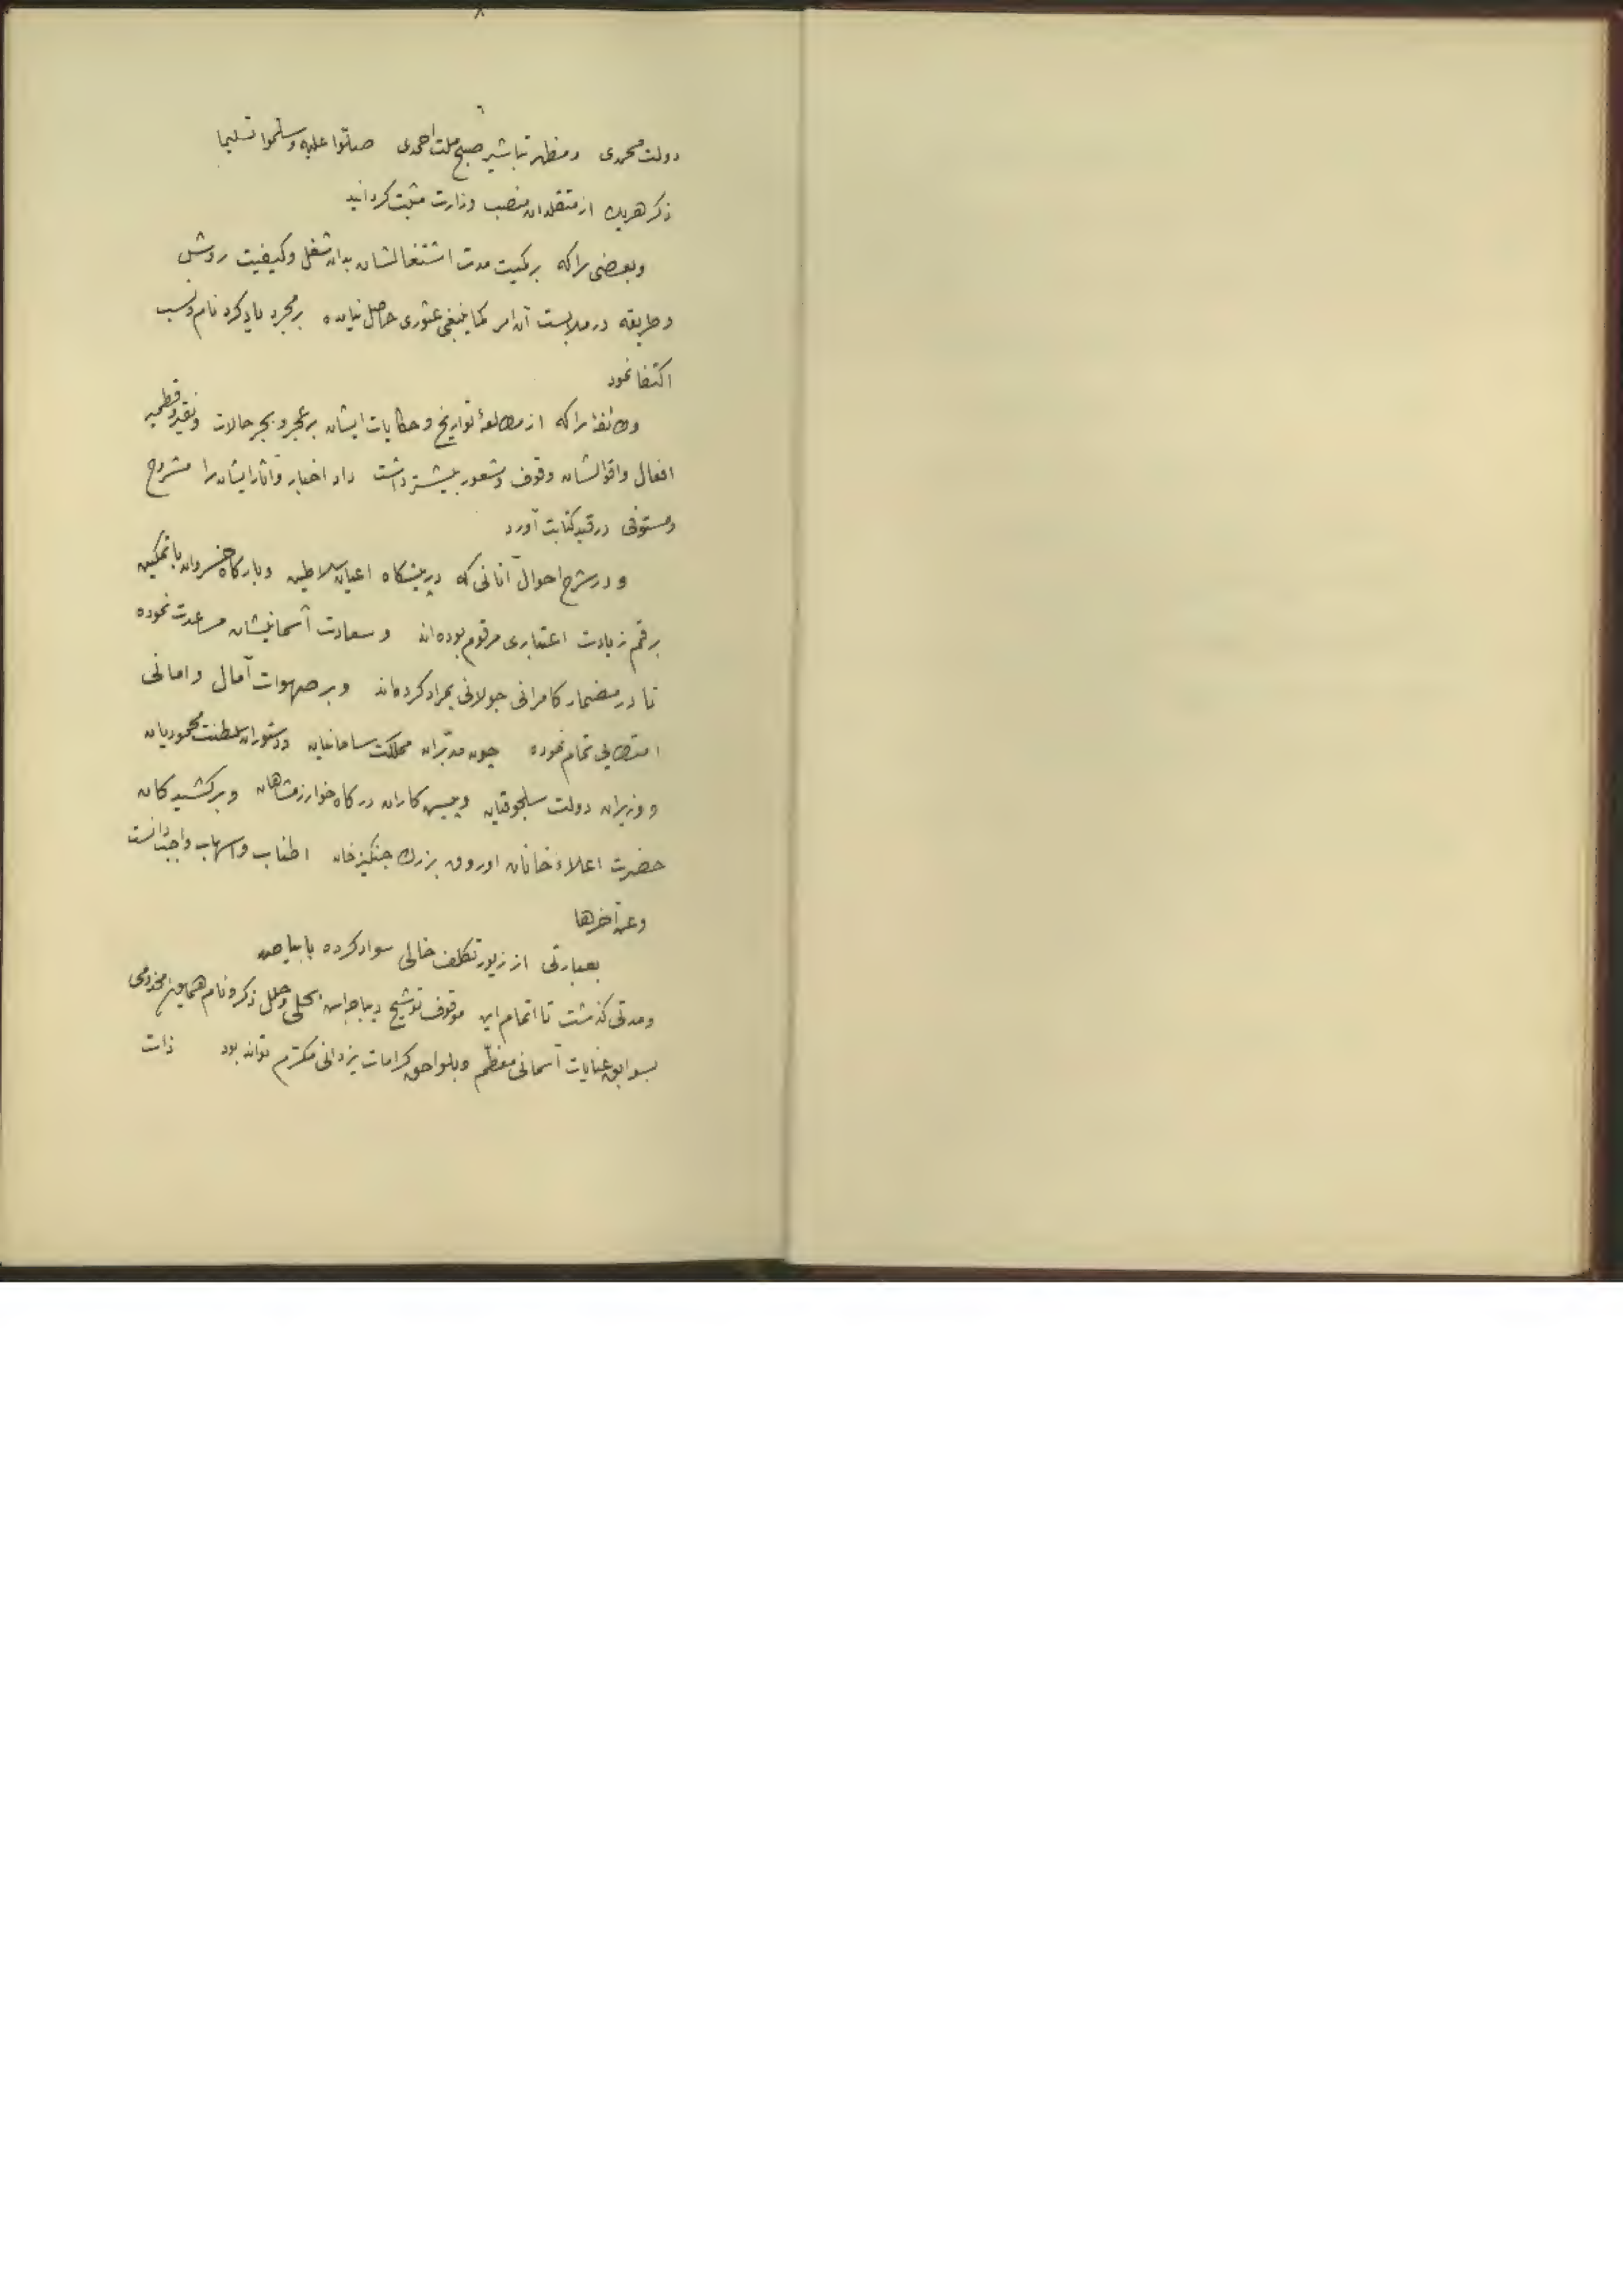 ۸
دولت محمدی ومظهر تباشیر صبح ملت احمدی صلّوا علیه وسلّموا تسلیما
ذکر هریک از متقلدان منصب وزارت مثبت کردانید
وبعضی را که بر کمیت مدت اشتغالشان بدان شغل وکیفیت روش
وطریقه در ملابست آن امر کما ینبغی عثوری حاصل نیامده بر مجرد یاد کرد نام ونسب
اکتفا نمود
وطائفهٔ را که از مطالعهٔ تواریخ وحکایات ایشان بر عجر وبجر حالات ونقیر وقطمیر
افعال واقوالشان وقوف وشعور بیشتر داشت داد اخبار وآثار ایشان را مشروح
ومستوفی در قید کتابت آورد
ودر شرح احوال آنانی که در پیشکاه اعیان سلاطین وبارکاه خسروان با تمکین
برقم زیادت اعتباری مرقوم بوده‌اند وسعادت آسمانیشان مساعدت نموده
تا در مضمار کامرانی جولانی بمراد کرده‌اند وبر صهوات آمال وامانی
امتطایی تمام نموده چون مدبّران مملکت سامانیان ودستوران سلطنت محمودیان
ووزیران دولت سلجوقیان وپیش کاران درکاه خوارزمشاهان وبرکشیدکان
حضرت اعلاء خانان اوروق بزرك جنکیز خان اطناب واسهاب واجب دانست
وعن آخرها
بعبارتی از زیور تکلف خالی سواد کرده با بیاض
ومدتی کذشت تا اتمام این موقوف توشیح دیباجه‌اش بحلی وحلل ذکر ونام همایون مخدومی
بسوابق عنایات آسمانی معظّم وبلواحق کرامات یزدانی مکرّم تواند بود ذات